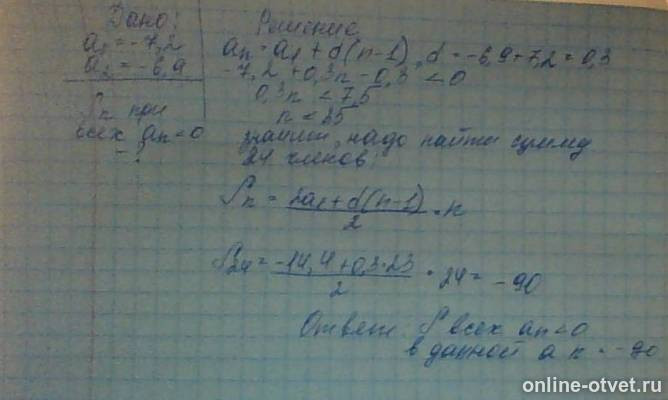 Дано:
a₁ = -7,2
a₂ = -6,9
Sn при
всех an < 0
- ?
Решение
an = a₁ + d(n-1), d = -6,9 + 7,2 = 0,3
-7,2 + 0,3n - 0,3 < 0
0,3n < 7,5
n < 25
значит, надо найти сумму
24 членов:
Sn = 2a₁ + d(n-1) / 2 · n
S₂₄ = -14,4 + 0,3·23 / 2 · 24 = -90
Ответ: S всех an < 0
в данной a n = -90
online-otvet.ru